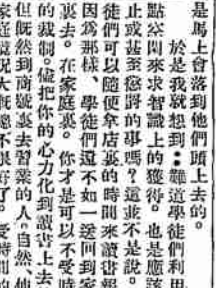 是馬上會落到他們頭上去的。
於是我就想到：難道學徒們利用
點空閑來求智識上的獲得。也是應該
止或甚至懲辦的事嗎？這並不是說。
徒們可以隨便拿店裏的時間來讀書報
因爲那樣、學徒們還不如一逕回到家
裏去。在家庭裏。你才是可以不受時
的裁制。儘把你的心力化到讀書上去
但既然到商號裏去習業的人。自然、他
家庭境况大概總不很好了。受時間的